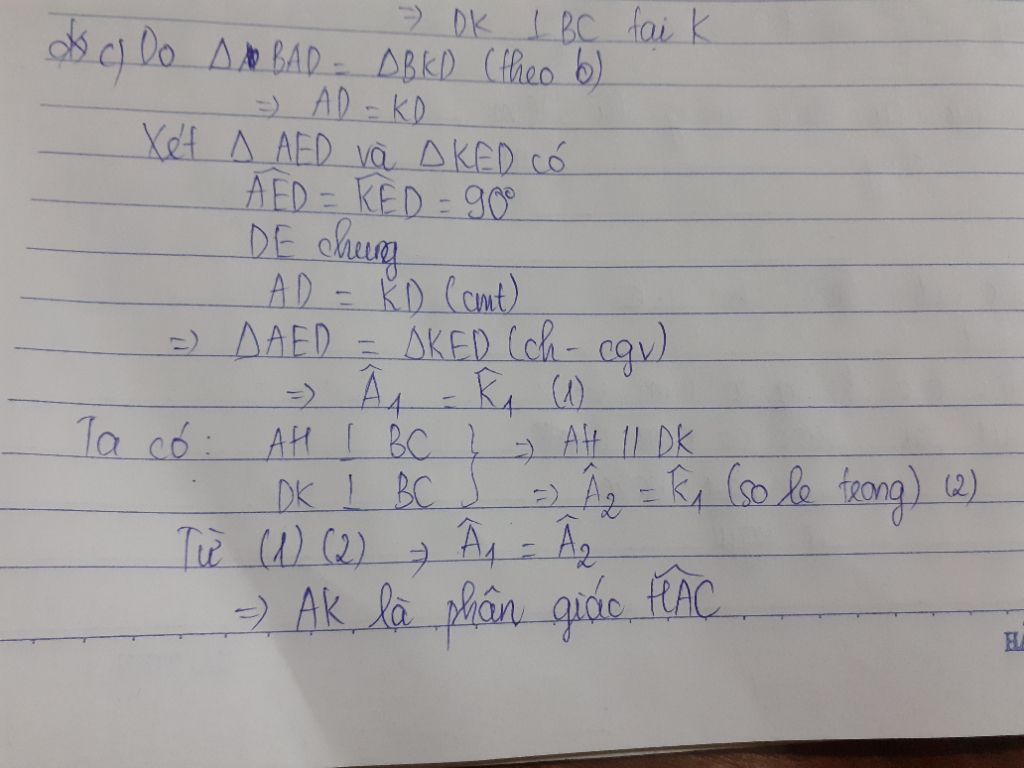 ⇒ DK ⊥ BC tại K
c) Do Δ BAD = ΔBKD (theo b)
⇒ AD = KD
Xét Δ AED và Δ KED có
\widehat{AED} = \widehat{KED} = 90°
DE chung
AD = KD (cmt)
⇒ ΔAED = ΔKED (ch - cgv)
⇒ Â₁ = K̂₁ (1)
Ta có: AH ⊥ BC } ⇒ AH // DK
DK ⊥ BC } ⇒ Â₂ = K̂₁ (so le trong) (2)
Từ (1) (2) ⇒ Â₁ = Â₂
⇒ AK là phân giác \widehat{HAC}